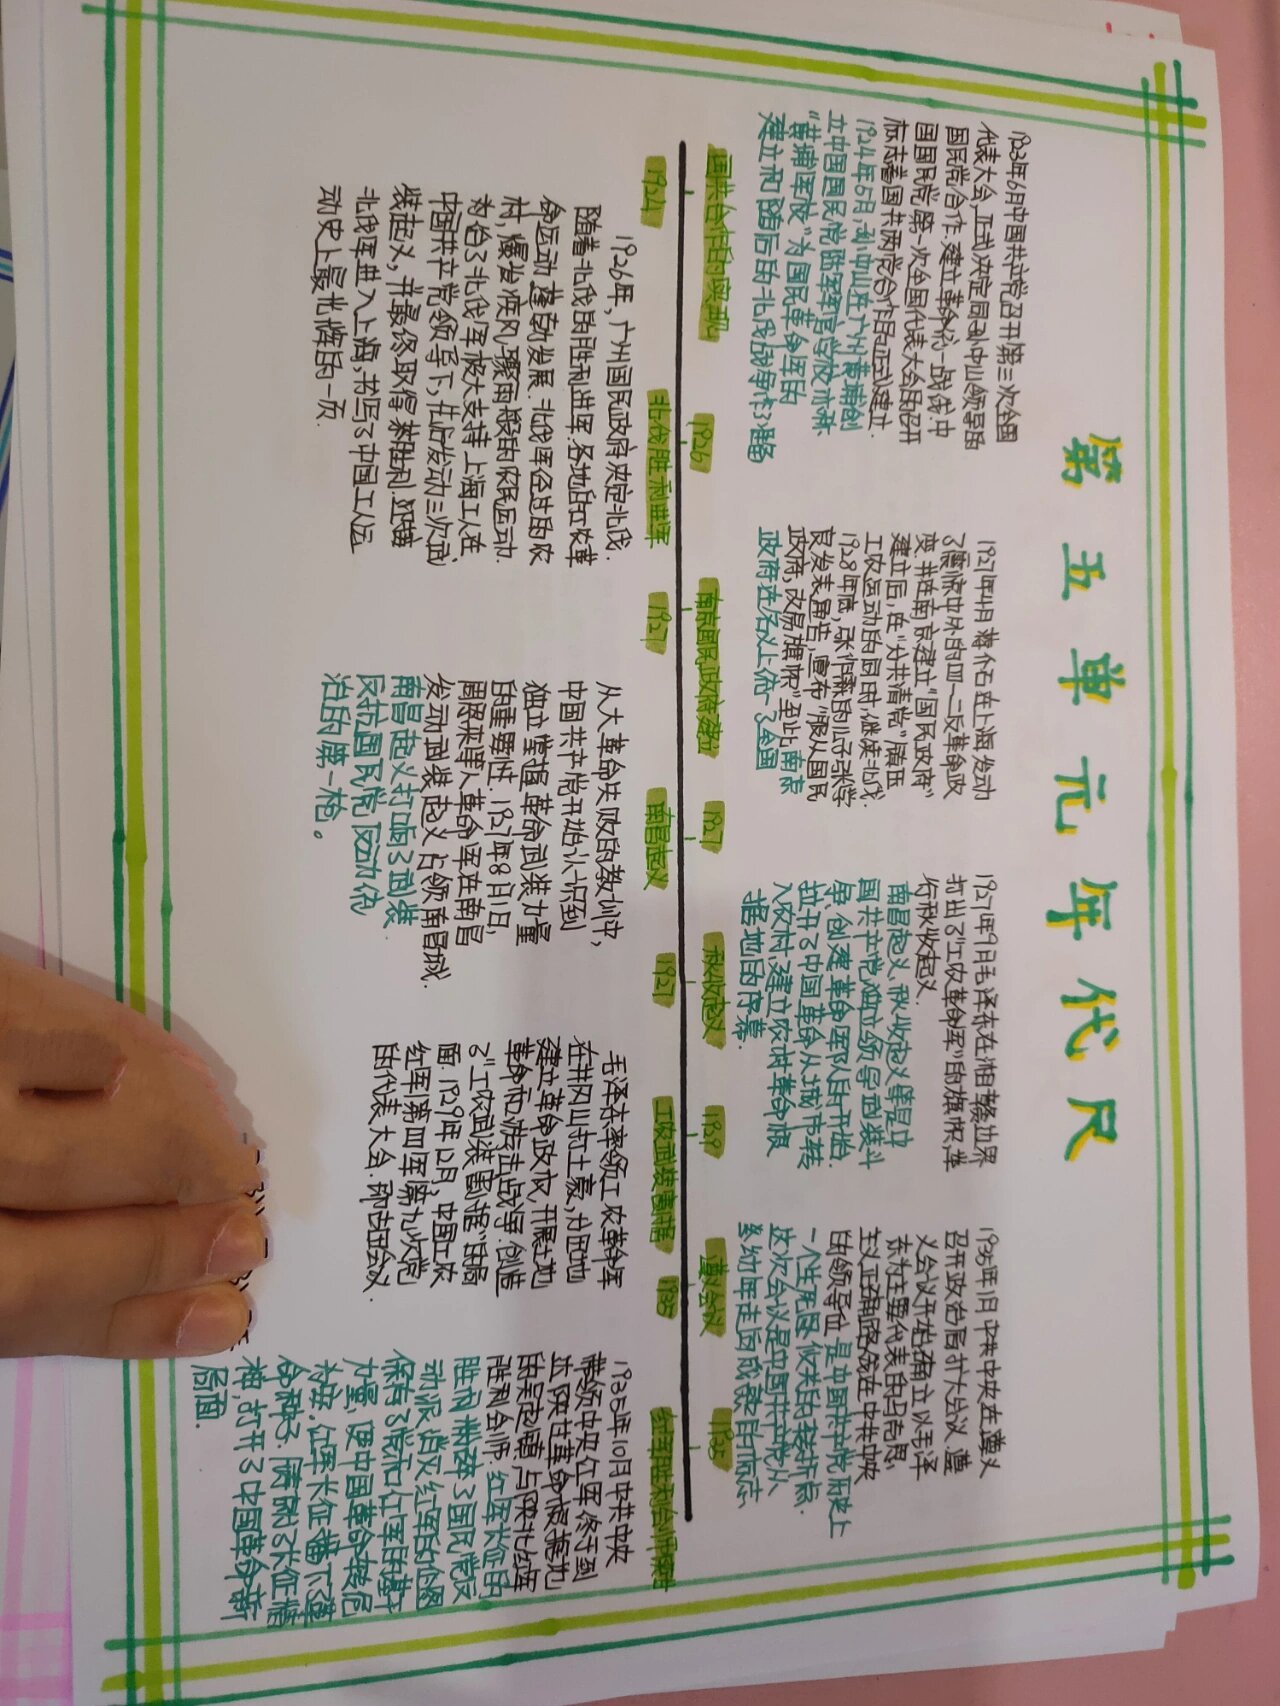 第五单元年代尺
1923年6月中国共产党召开第三次全国
代表大会,正式决定同孙中山领导的
国民党合作.建立革命统一战线.中
国国民党第一次全国代表大会的召开
标志着国共两党合作的正式建立.
1924年5月,孙中山在广州黄埔创
立中国国民党陆军军官学校亦称
“黄埔军校”为国民革命军的
建立和随后的北伐战争作了准备
1927年4月蒋介石在上海发动
了震惊中外的四一二反革命政
变.并在南京建立“国民政府”
建立后,在“分共清党”镇压
工农运动的同时,继续北伐.
1928年底,张作霖的儿子张学
良发表宣告,宣布“服从国民
政府,改易旗帜”至此,南京
政府在名义上统一了全国
1927年9月毛泽东在湘赣边界
打出了“工农革命军”的旗帜,举
行秋收起义.
南昌起义、秋收起义等是中
国共产党独立领导武装斗
争,创建革命军队的开始.
拉开了中国革命从城市转
入农村,建立农村革命根
据地的序幕.
1935年1月中共中央在遵义
召开政治局扩大会议.遵
义会议开始确立以毛泽
东为主要代表的马克思
主义正确路线在中共中央
的领导地位,是中国共产党历史上
一个生死攸关的转折点.
这次会议是中国共产党从
幼年走向成熟的标志
国共合作的实现
1926
南京国民政府建立
1927
秋收起义
1929
遵义会议
1935
1924
北伐胜利进军
1927
南昌起义
1927
工农武装割据
1935
红军胜利会师陕甘
1926年,广州国民政府决定北伐.
随着北伐的胜利进军.各地的工农革
命运动蓬勃发展.北伐军经过的农
村,爆发疾风骤雨般的农民运动.
为给了北伐军极大支持.上海工人在
中国共产党领导下,先后发动三次武
装起义,并最终取得来胜利.迎接
北伐军进入上海,书写了中国工人运
动史上最光辉的一页.
从大革命失败的教训中,
中国共产党开始认识到
独立掌握革命武装力量
的重要性.1927年8月1日,
周恩来等人革命军在南昌
发动武装起义,占领南昌城.
南昌起义打响了武装
反抗国民党反动统
治的第一枪。
毛泽东率领工农革命军
在井冈山打土豪,分田地
建立革命政权,开展土地
革命和游击战争.创造
了“工农武装割据”的局
面.1929年12月,中国工农
红军第四军第九次党
的代表大会.即古田会议.
1935年10月中共中央
带领中央红军终于到
达陕甘革命根据地
的吴起镇.与陕北红军
胜利会师.红军长征的
胜利粉碎了国民党反
动派消灭红军的企图
保存了党和红军的基干
力量,使中国革命转危
为安.红军长征播下革
命种子.铸就了长征精
神,打开了中国革命新
局面.